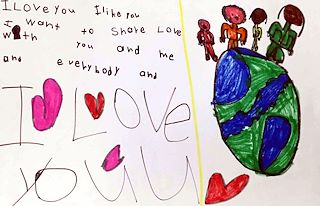 I Love you I like you
I want to share Love
with you and me
and everybody and
I Love
you